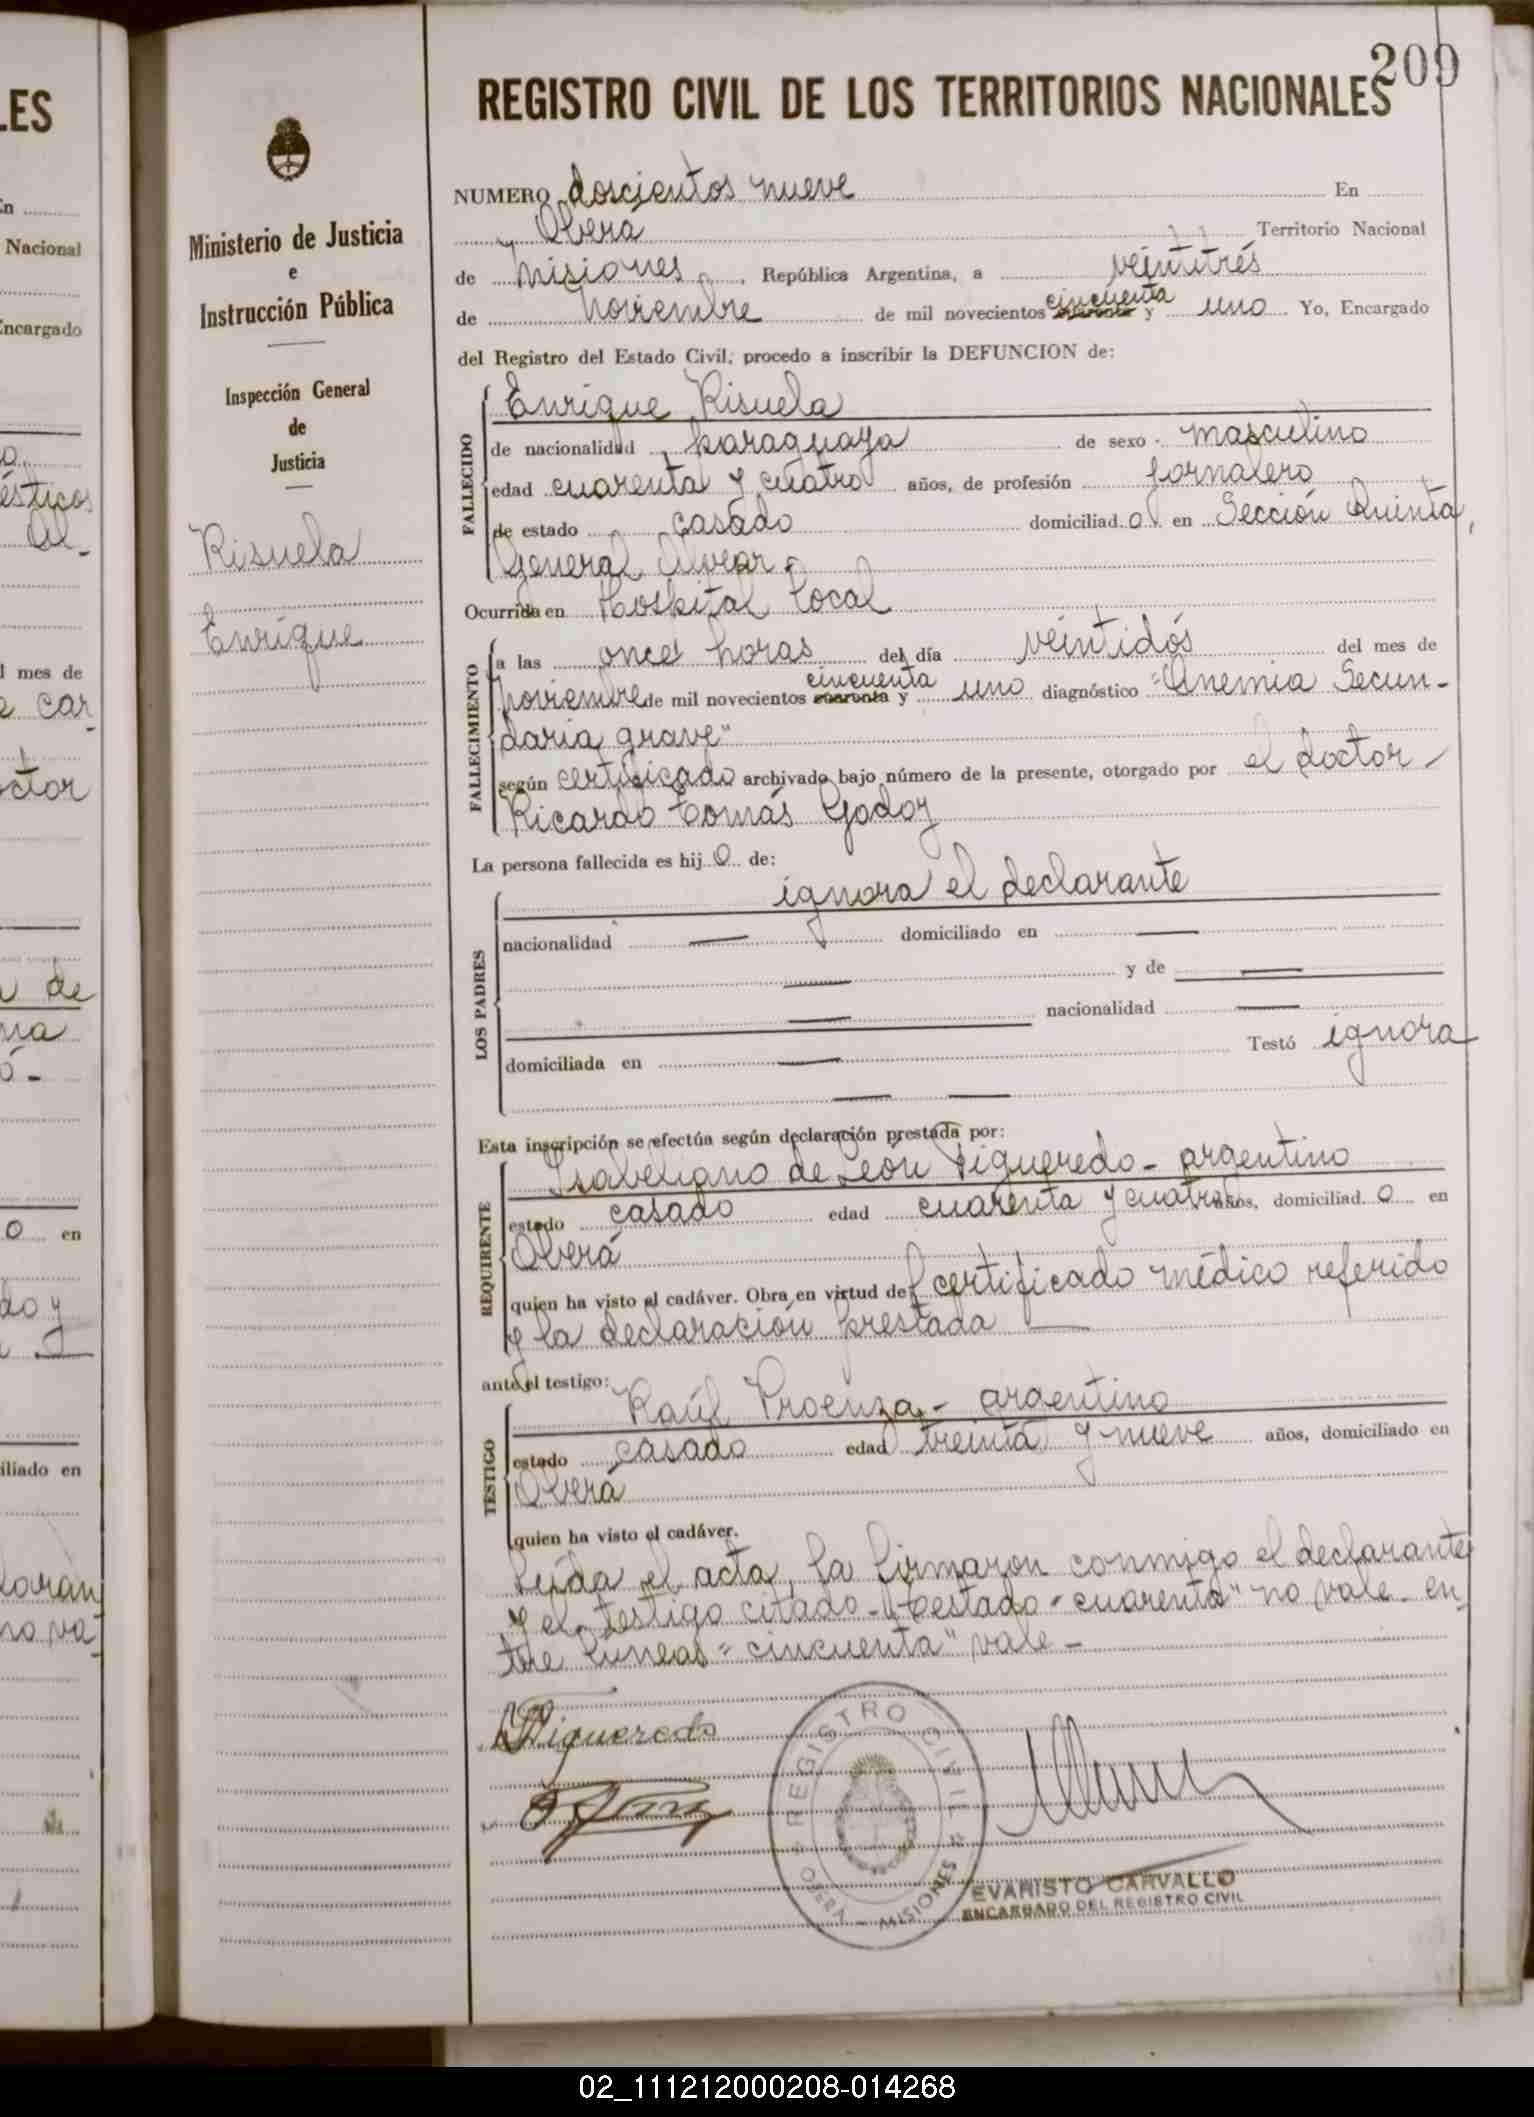 LES
En
Nacional
Encargado
o.
ésticos
Al-
l mes de
e car-
octor
a de
na
ó-
o en
do y
iliado en
lorán
no va-
Ministerio de Justicia
e
Instrucción Pública
Inspección General
de
Justicia
Risuela
Enrique
209
REGISTRO CIVIL DE LOS TERRITORIOS NACIONALES
NUMERO doscientos nueve En
Oberá Territorio Nacional
de Misiones, República Argentina, a veintitrés
de Noviembre de mil novecientos cincuenta cuarenta y uno Yo, Encargado
del Registro del Estado Civil, procedo a inscribir la DEFUNCION de:
FALLECIDO
Enrique Risuela
de nacionalidad paraguaya de sexo masculino
edad cuarenta y cuatro años, de profesión jornalero
de estado casado domiciliad o en Sección Quinta,
General Alvear.
Ocurrida en Hospital Local
FALLECIMIENTO
a las once horas del día veintidós del mes de
Noviembre de mil novecientos cincuenta cuarenta y uno diagnóstico "Anemia Secun-
daria grave"
según certificado archivado bajo número de la presente, otorgado por el doctor
Ricardo Tomás Godoy
La persona fallecida es hij o de:
LOS PADRES
ignora el declarante
nacionalidad — domiciliado en —
— y de —
— nacionalidad —
domiciliada en — Testó ignora
— —
Esta inscripción se efectúa según declaración prestada por:
REQUIRENTE
de León Figueredo - argentino
estado casado edad cuarenta y cuatro años, domiciliad o en
Oberá
quien ha visto el cadáver. Obra en virtud del certificado médico referido
y la declaración prestada —
ante el testigo:
TESTIGO
Raúl Proenza - argentino
estado casado edad treinta y nueve años, domiciliado en
Oberá
quien ha visto el cadáver.
Leída el acta, la firmaron conmigo el declarante
y el testigo citado - Testado "cuarenta" no vale - en-
tre líneas "cincuenta" vale -
Figueredo
REGISTRO CIVIL
OBERA - MISIONES
EVARISTO CARVALLO
ENCARGADO DEL REGISTRO CIVIL
02_111212000208-014268